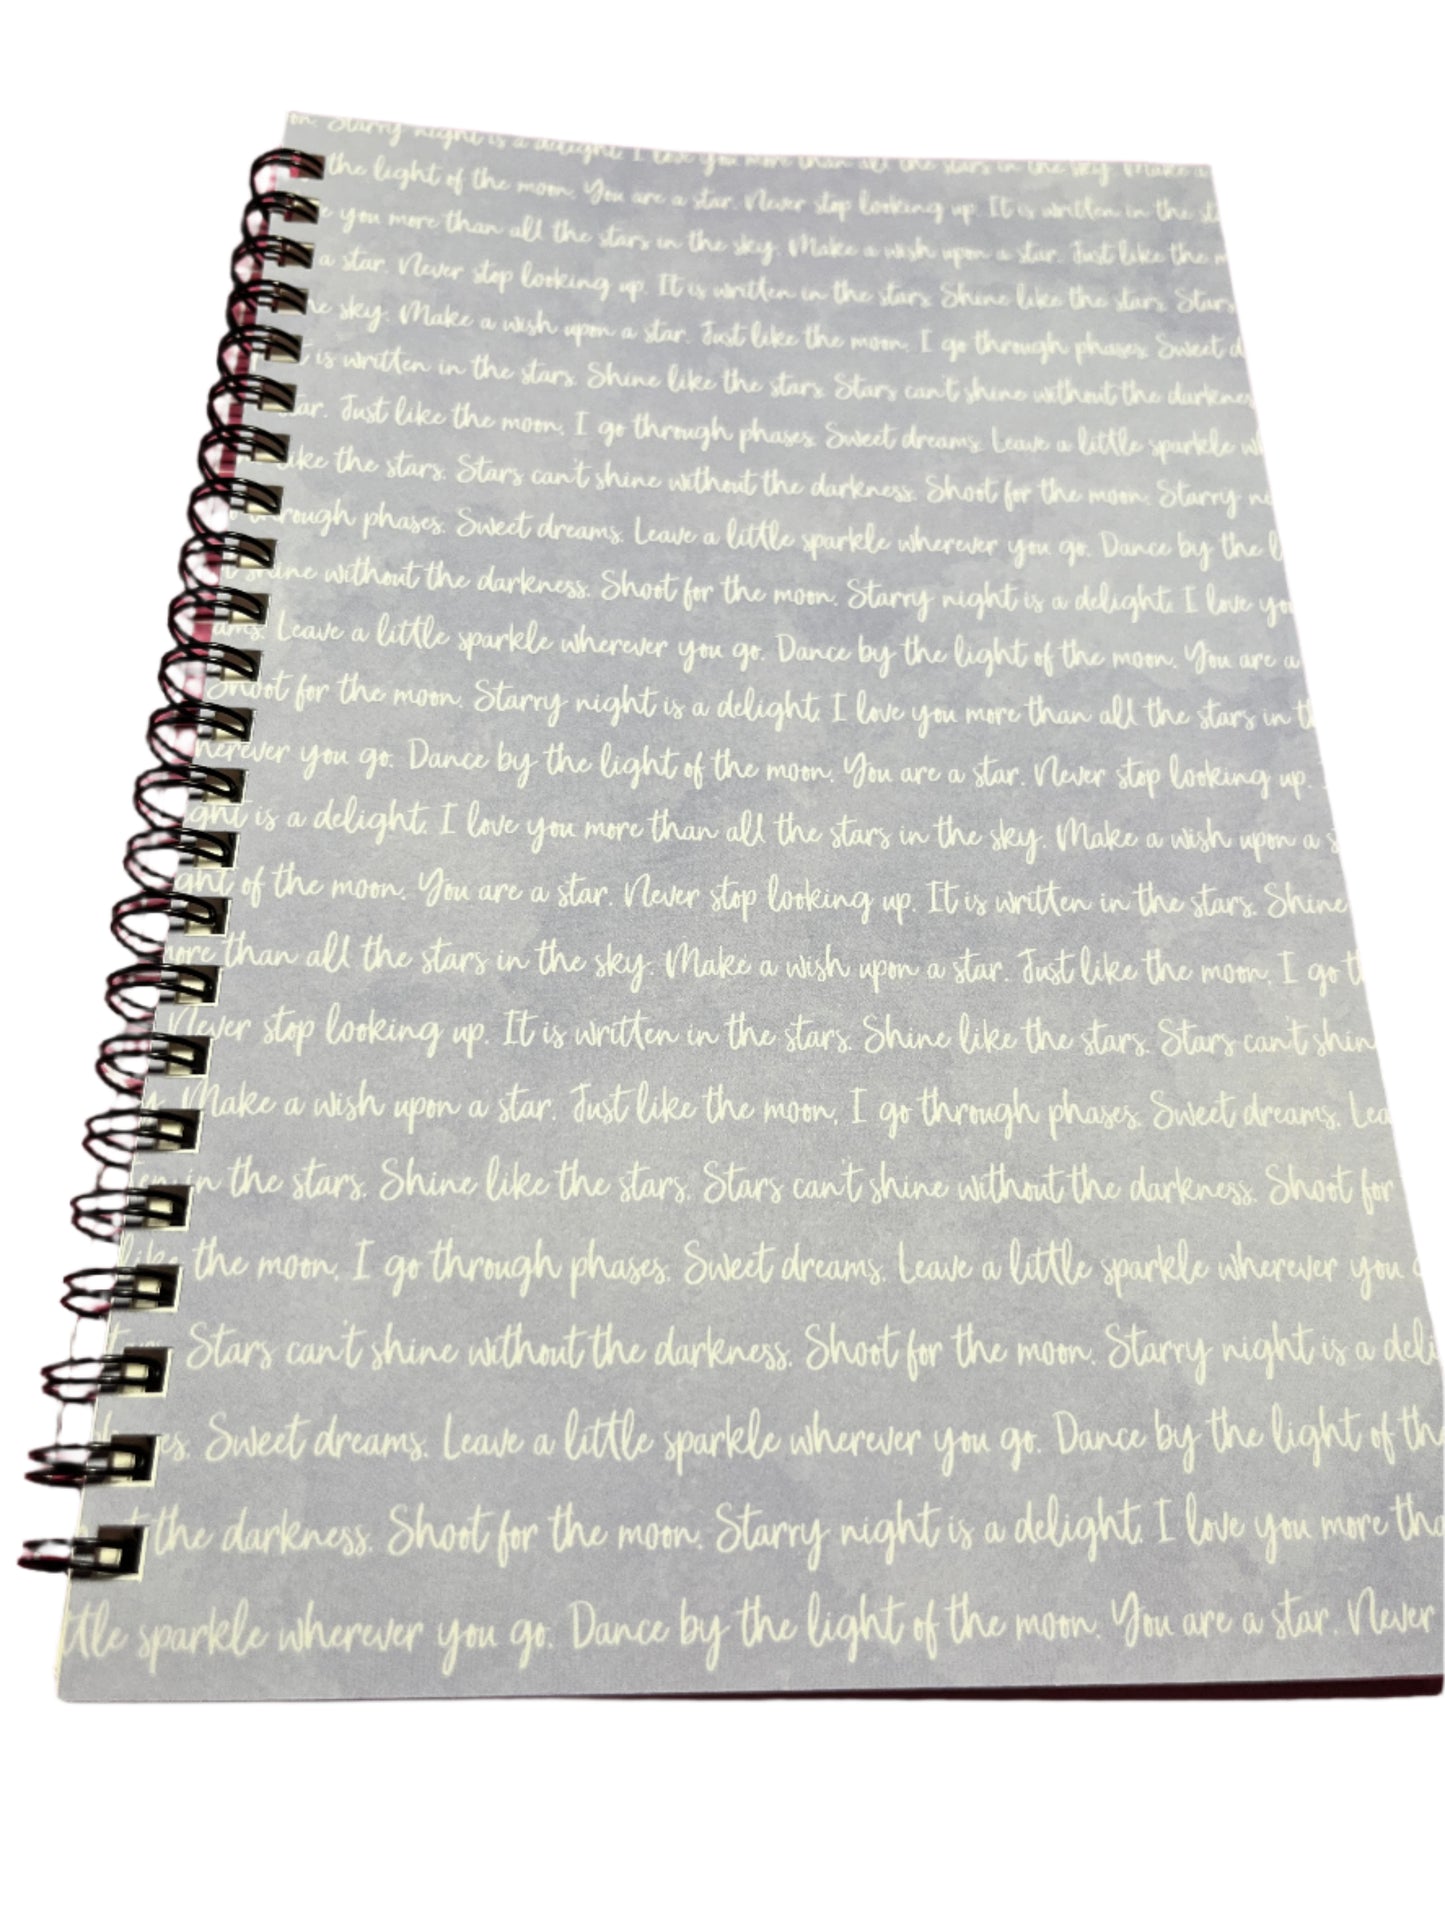 on. Starry night is a delight. I love you more than all the stars in the sky. Make a
the light of the moon. You are a star. Never stop looking up. It is written in the
you more than all the stars in the sky. Make a wish upon a star. Just like the
a star. Never stop looking up. It is written in the stars. Shine like the stars. Stars
sky. Make a wish upon a star. Just like the moon, I go through phases. Sweet
is written in the stars. Shine like the stars. Stars can't shine without the darknes
ar. Just like the moon, I go through phases. Sweet dreams. Leave a little sparkle
like the stars. Stars can't shine without the darkness. Shoot for the moon. Starry
through phases. Sweet dreams. Leave a little sparkle wherever you go. Dance by the
shine without the darkness. Shoot for the moon. Starry night is a delight. I love you
ams. Leave a little sparkle wherever you go. Dance by the light of the moon. You are a
Shoot for the moon. Starry night is a delight. I love you more than all the stars in
wherever you go. Dance by the light of the moon. You are a star. Never stop looking up.
ght is a delight. I love you more than all the stars in the sky. Make a wish upon a
ght of the moon. You are a star. Never stop looking up. It is written in the stars. Shine
more than all the stars in the sky. Make a wish upon a star. Just like the moon, I go
Never stop looking up. It is written in the stars. Shine like the stars. Stars can't shin
y. Make a wish upon a star. Just like the moon, I go through phases. Sweet dreams. Lea
in the stars. Shine like the stars. Stars can't shine without the darkness. Shoot for
like the moon, I go through phases. Sweet dreams. Leave a little sparkle wherever you
Stars can't shine without the darkness. Shoot for the moon. Starry night is a deli
es. Sweet dreams. Leave a little sparkle wherever you go. Dance by the light of th
the darkness. Shoot for the moon. Starry night is a delight. I love you more tha
ttle sparkle wherever you go. Dance by the light of the moon. You are a star. Never